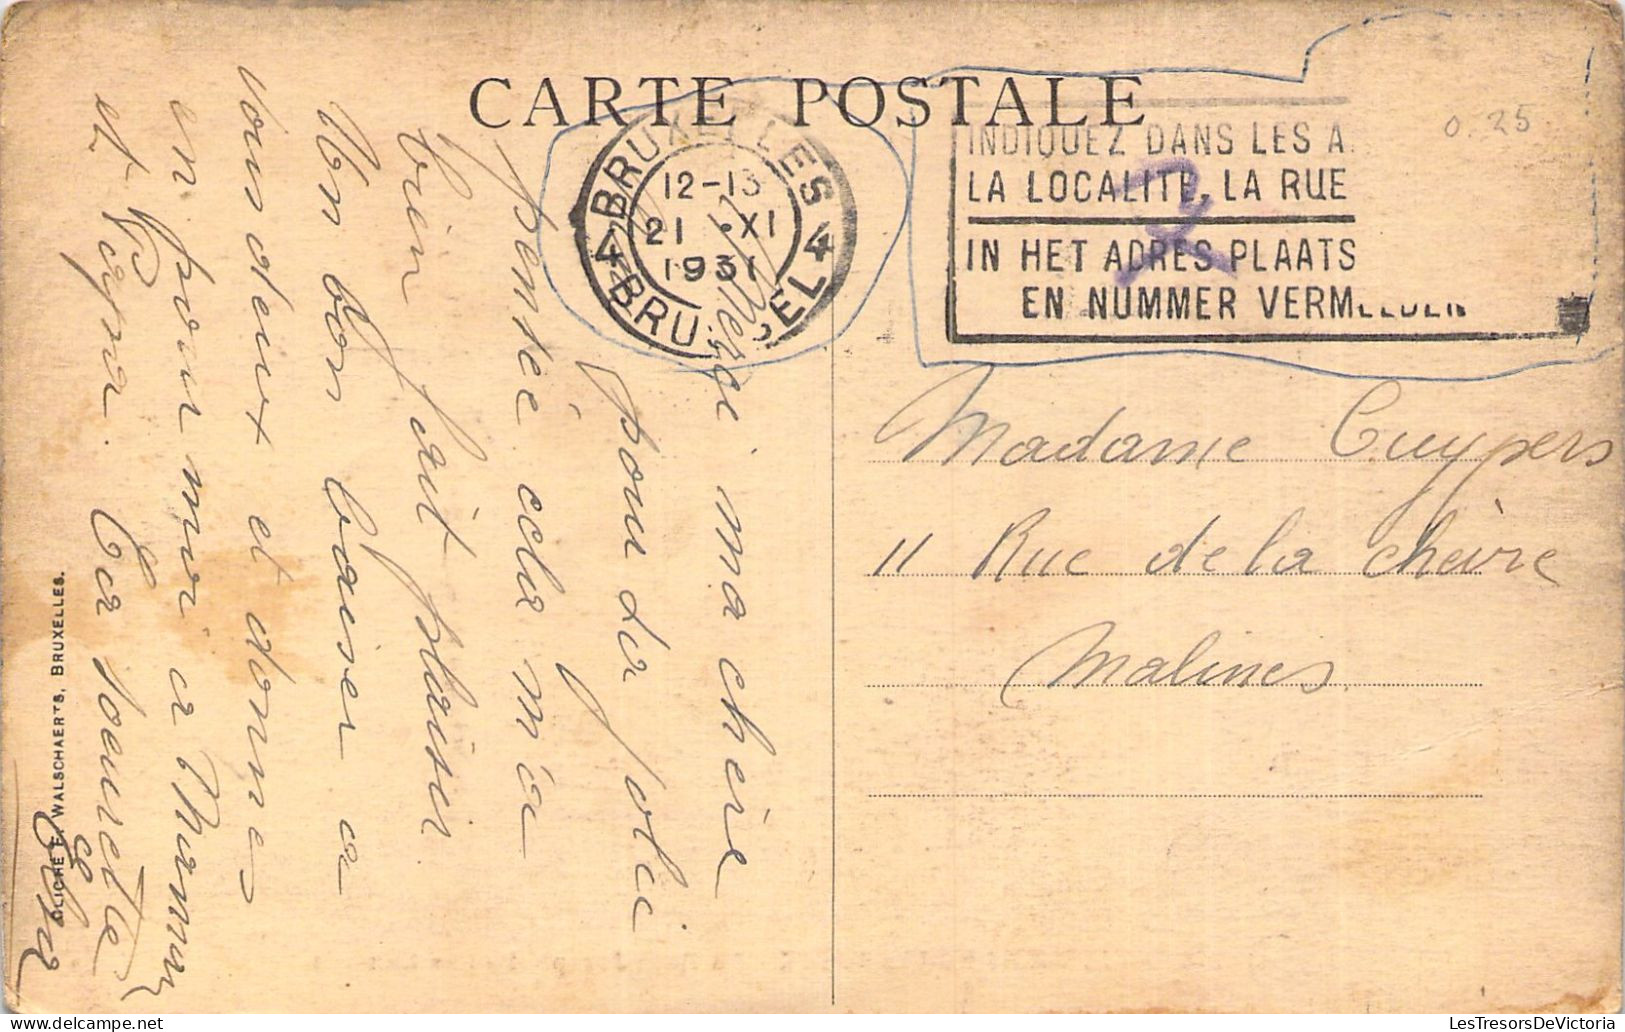 CARTE POSTALE
BRUXELLES
12-13
21 XI
1931
4 BRUSSEL 4
INDIQUEZ DANS LES A
LA LOCALITÉ, LA RUE
IN HET ADRES PLAATS
EN NUMMER VERMELDEN
0.25
Madame Cuypers
11 Rue de la cheire
Malines
Merci ma chère
pour la jolie
pensée cela m'a
bien fait plaisir
Un bon baiser a
vous deux et donnes
en pour moi a Maman
et Papa. Ta soeurette
Elsa
CLICHÉ E. WALSCHAERTS, BRUXELLES.
LesTresorsDeVictoria